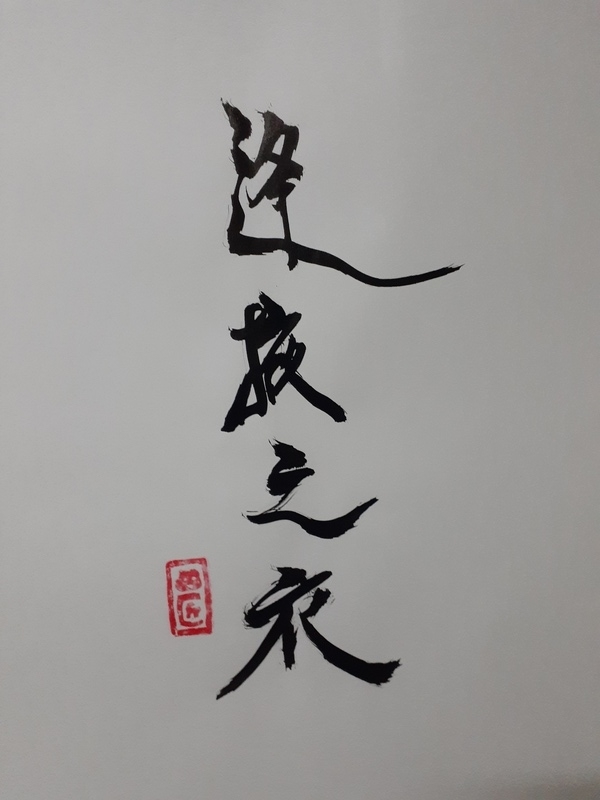 逢掖之衣